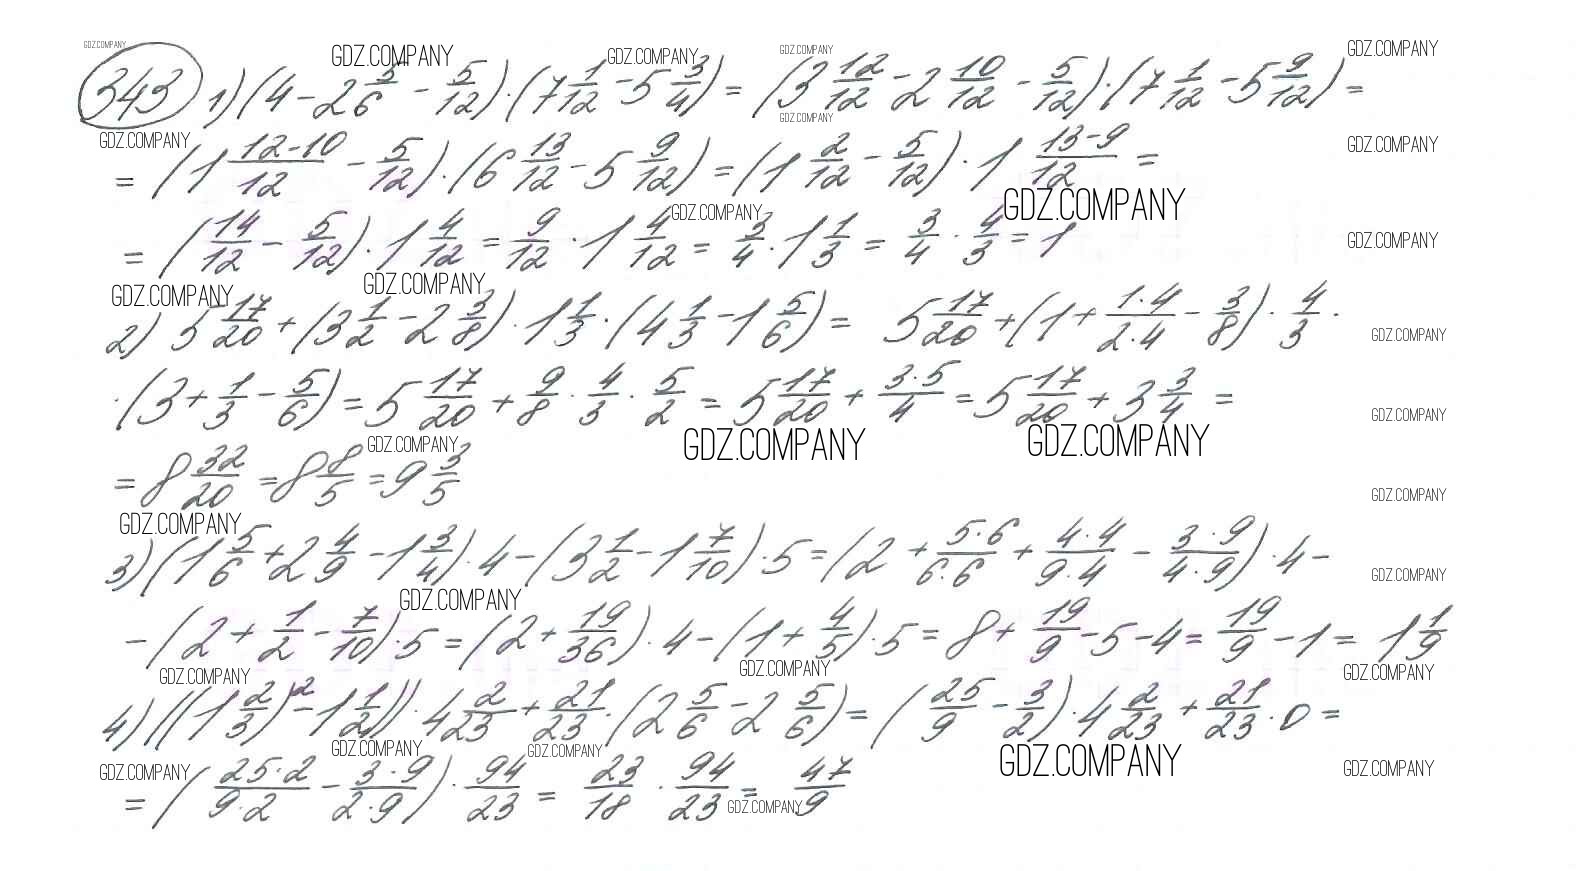 GDZ.COMPANY GDZ.COMPANY GDZ.COMPANY GDZ.COMPANY GDZ.COMPANY
343 1) (4 - 2 5/6 - 5/12) · (7 1/12 - 5 3/4) = (3 12/12 - 2 10/12 - 5/12) · (7 1/12 - 5 9/12) =
GDZ.COMPANY GDZ.COMPANY GDZ.COMPANY
= (1 12-10/12 - 5/12) · (6 13/12 - 5 9/12) = (1 2/12 - 5/12) · 1 13-9/12 =
GDZ.COMPANY GDZ.COMPANY GDZ.COMPANY
= (14/12 - 5/12) · 1 4/12 = 9/12 · 1 4/12 = 3/4 · 1 1/3 = 3/4 · 4/3 = 1
GDZ.COMPANY GDZ.COMPANY
2) 5 17/20 + (3 1/2 - 2 3/8) · 1 1/3 · (4 1/3 - 1 5/6) = 5 17/20 + (1 + 1·4/2·4 - 3/8) · 4/3 ·
GDZ.COMPANY
· (3 + 1/3 - 5/6) = 5 17/20 + 9/8 · 4/3 · 5/2 = 5 17/20 + 3·5/4 = 5 17/20 + 3 3/4 =
GDZ.COMPANY GDZ.COMPANY GDZ.COMPANY GDZ.COMPANY
= 8 32/20 = 8 8/5 = 9 3/5
GDZ.COMPANY GDZ.COMPANY
3) (1 5/6 + 2 4/9 - 1 3/4) · 4 - (3 1/2 - 1 7/10) · 5 = (2 + 5·6/6·6 + 4·4/9·4 - 3·9/4·9) · 4 -
GDZ.COMPANY GDZ.COMPANY
- (2 + 1/2 - 7/10) · 5 = (2 + 19/36) · 4 - (1 + 4/5) · 5 = 8 + 19/9 - 5 - 4 = 19/9 - 1 = 1 1/9
GDZ.COMPANY GDZ.COMPANY GDZ.COMPANY
4) ((1 2/3)² - 1 1/2)) · 4 2/23 + 21/23 · (2 5/6 - 2 5/6) = (25/9 - 3/2) · 4 2/23 + 21/23 · 0 =
GDZ.COMPANY GDZ.COMPANY GDZ.COMPANY GDZ.COMPANY GDZ.COMPANY
= (25·2/9·2 - 3·9/2·9) · 94/23 = 23/18 · 94/23 = 47/9
GDZ.COMPANY